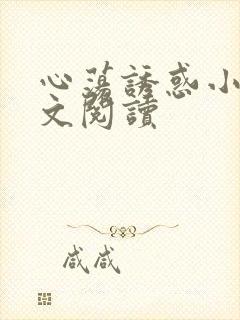 心蕩誘惑小
文閱讀
咸咸